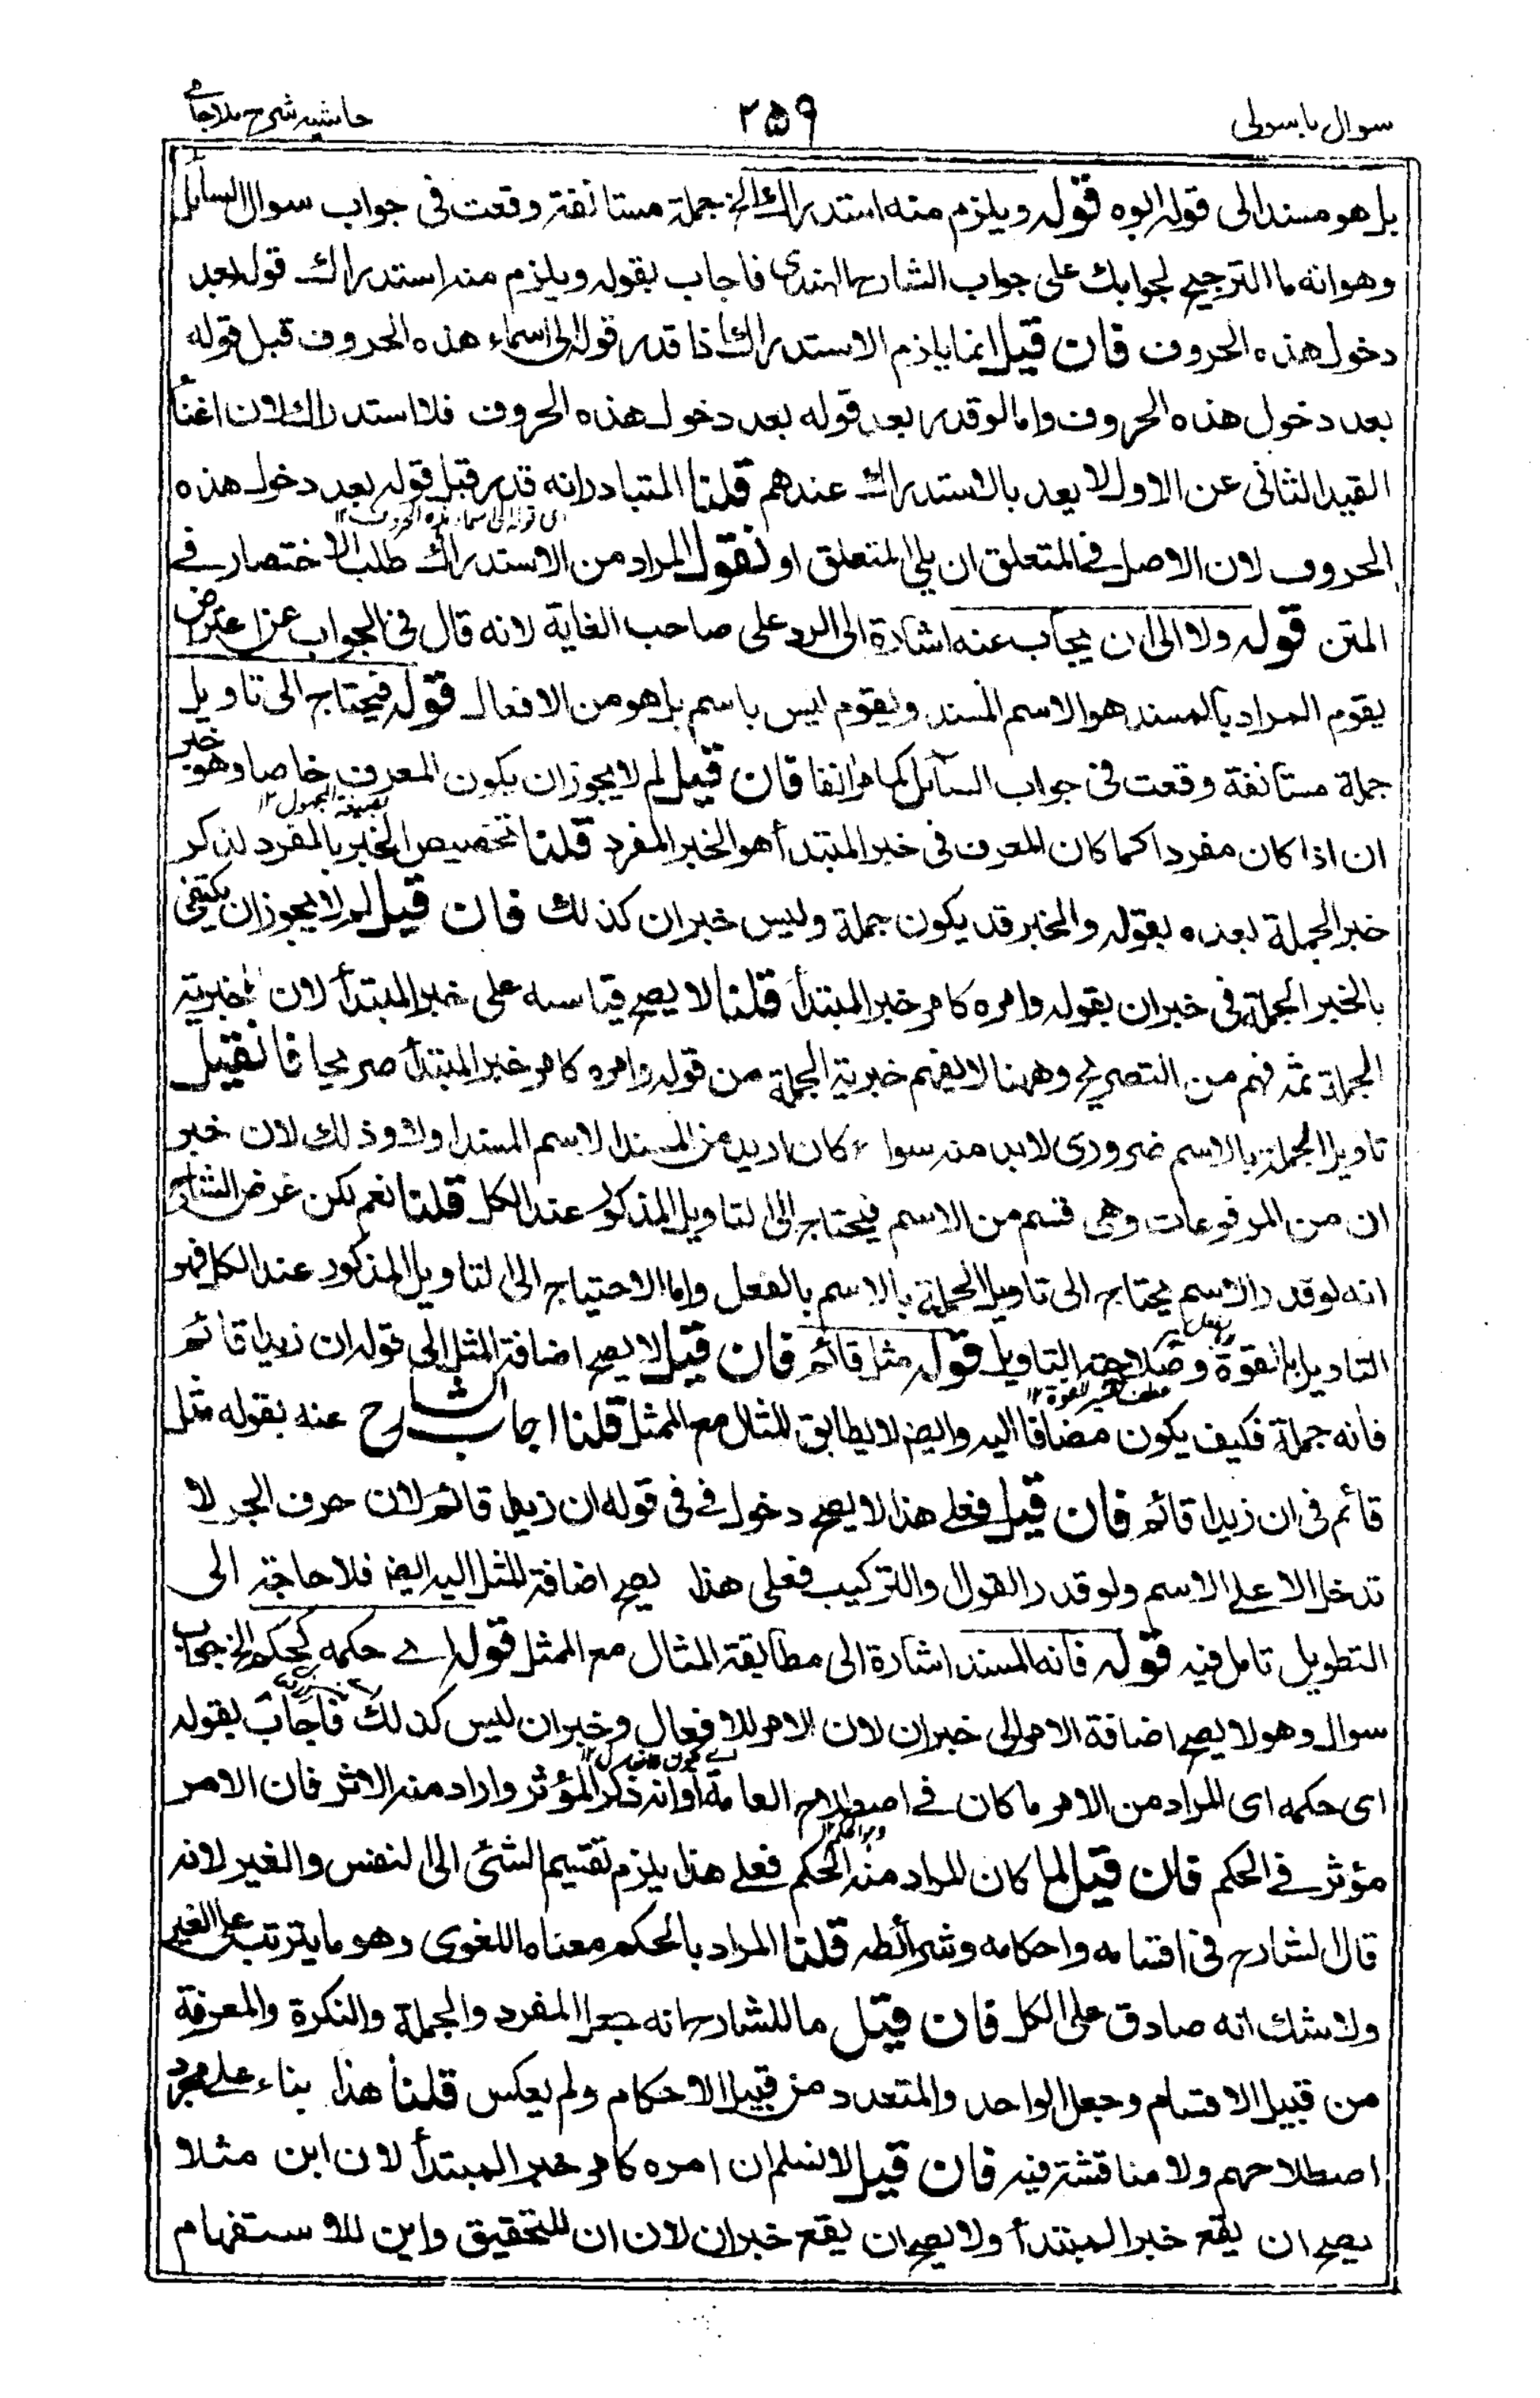 سوال باسولی
۲۵۹
حاشیہ شرح ملا جامی
بل هو مسند الى قوله ابوه قوله ويلزم منه استدراك الخ جملة مستانفة وقعت فى جواب سوال السائل
وهو انه ما الترجيح لجوابك على جواب الشارح الهندى فاجاب بقوله ويلزم منه استدراك قوله بعد
دخول هذه الحروف فان قيل انما يلزم الاستدراك اذا قدر قوله الى اسماء هذه الحروف قبل قوله
بعد دخول هذه الحروف واما لو قدر بعد قوله بعد دخول هذه الحروف فلا استدراك لان اغناء
القيد الثانى عن الاول لا يعد بالاستدراك عندهم قلنا المتبادر انه قدر قبل قوله بعد دخول هذه
اى قوله الى اسماء هذه الحروف ۱۲
الحروف لان الاصل فى المتعلق ان يلى المتعلق او نقول المراد من الاستدراك طلب الاختصار فے
المتن قوله ولا الى ان يجاب عنه اشارة الى الرد على صاحب الغاية لانه قال فى الجواب عن اعتراض
يقوم المراد بالمسند هو الاسم المسند ويقوم ليس باسم بل هو من الافعال قوله فيحتاج الى تاويل
جملة مستانفة وقعت فى جواب السائل كما مر انفا فان قيل لم لا يجوز ان يكون المعرف خاصا وهو خبر
بصيغة المجهول ۱۲
ان اذا كان مفردا كما كان المعرف فى خبر المبتدأ هو الخبر المفرد قلنا تخصيص الخبر بالمفرد لذكر
خبر الجملة بعده بقوله والخبر قد يكون جملة وليس خبر ان كذلك فان قيل لم لا يجوز ان يكتفى
بالخبر الجملة فى خبر ان بقوله وامره كامر خبر المبتدأ قلنا لا يصح قياسه على خبر المبتدأ لان خبرية
الجملة ثمه فهم من التصريح وههنا لا يفهم خبرية الجملة من قوله وامره كامر خبر المبتدأ صريحا فان قيل
تاويل الجملة بالاسم ضرورى لابد منه سواء كان اريد من المسند الاسم المسند اولا وذلك لان خبر
ان من المرفوعات وهى قسم من الاسم فيحتاج الى التاويل المذكور عند الكل قلنا نعم لكن غرض الشارح
انه لو قدر الاسم يحتاج الى تاويل الجملة بالاسم بالفعل واما الاحتياج الى التاويل المذكور عند الكل فهو
التاويل بالقوة وصلاحية التاويل قوله مثل قائم فان قيل لا يصح اضافة المثل الى قوله ان زيدا قائم
عطف تفسير للقوة ۱۲
فانه جملة فكيف يكون مضافا اليه وايضا لا يطابق المثال مع الممثل قلنا اجاب الشارح عنه بقوله مثل
قائم فى ان زيدا قائم فان قيل فعلى هذا لا يصح دخول فے فى قوله ان زيدا قائم لان حرف الجر لا
تدخل الا على الاسم ولو قدر القول والتركيب فعلى هذا يصح اضافة المثل اليه ايضا فلا حاجة الى
التطويل تامل فيه قوله فانه المسند اشارة الى مطابقة المثال مع الممثل قوله اے حكمه كحكم الخ جواب
سوال وهو لا يصح اضافة الامر الى خبر ان لان الامر للافعال وخبر ان ليس كذلك فاجاب بقوله
اى حكمه اى المراد من الامر ما كان فے اصطلاح العامة او انه ذكر المؤثر واراد منه الاثر فان الامر
مؤثر فے الحكم فان قيل لما كان المراد منه الحكم فعلے هذا يلزم تقسيم الشئ الى النفس والغير لانه
قال الشارح فى اقسامه واحكامه وشرائطه قلنا المراد بالحكم معناه اللغوى وهو ما يترتب على الغير
ولا شك انه صادق على الكل فان قيل ما للشارح انه جعل المفرد والجملة والنكرة والمعرفة
من قبيل الاقسام وجعل الواحد والمتعدد من قبيل الاحكام ولم يعكس قلنا هذا بناء على مجرد
اصطلاحهم ولا مناقشة فيه فان قيل لا نسلم ان امره كامر خبر المبتدأ لان اين مثلا
يصح ان يقع خبر المبتدأ ولا يصح ان يقع خبر ان لان ان للتحقيق واين للاستفهام